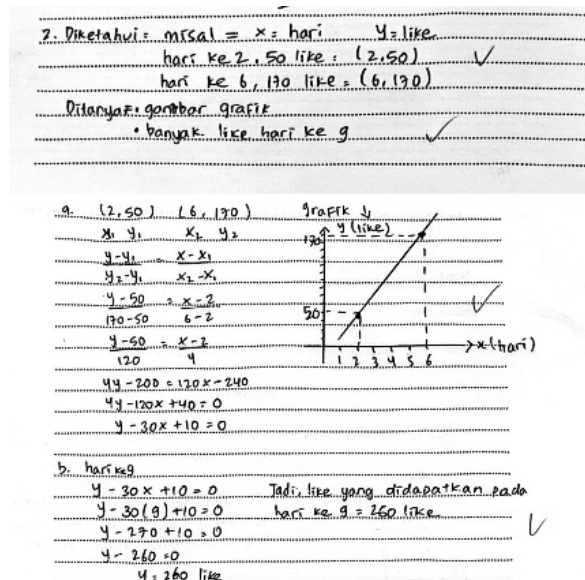 2. Diketahui = misal = x = hari y = like
hari ke 2, 50 like = (2,50)
hari ke 6, 170 like = (6,170)
Ditanya = • gambar grafik
• banyak like hari ke 9
a. (2,50) (6,170)
x₁ y₁ x₂ y₂
y-y₁ / y₂-y₁ = x-x₁ / x₂-x₁
y-50 / 170-50 = x-2 / 6-2
y-50 / 120 = x-2 / 4
4y-200 = 120x-240
4y-120x+40=0
y-30x+10=0
grafik ↓
y (like)
170
50
1 2 3 4 5 6
x (hari)
b. hari ke 9
y-30x+10=0
y-30(9)+10=0
y-270+10=0
y-260=0
y=260 like
Jadi, like yang didapatkan pada
hari ke 9 = 260 like